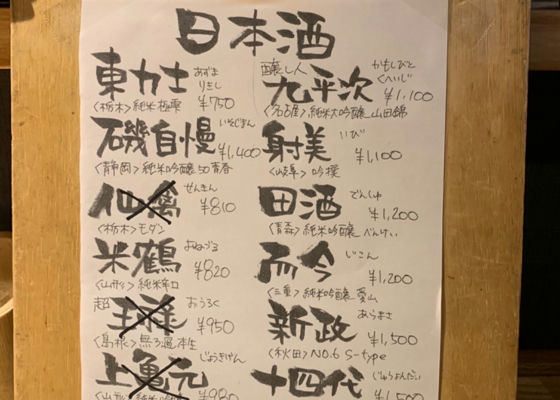 日本酒
東力士 あずまりきし
¥750
<栃木>純米極雫
磯自慢 いそじまん
¥1,400
<静岡>純米吟醸 50 青春
仙禽 せんきん
¥810
<栃木>モダン
米鶴 よねづる
¥820
<山形>純米辛口
超
王祿 おうろく
¥950
<島根>無ろ過本生
上亀元 じょうきげん
¥980
醸し人 かもしびと
九平次 くへいじ
¥1,100
<名古屋>純米大吟醸 山田錦
射美 いび
¥1,100
<岐阜>吟撰
田酒 でんしゅ
¥1,200
<青森>純米吟醸 べんけい
而今 じこん
¥1,200
<三重>純米吟醸 愛山
新政 あらまさ
¥1,500
<秋田>NO.6 S-type
十四代 じゅうよんだい
¥1,500